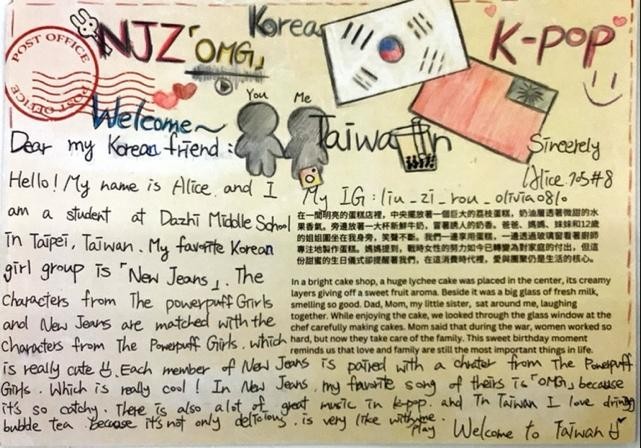 POST OFFICE
POST OFFICE
NJZ「OMG」
Korea
K-pop
Welcome~
You
Me
Taiwan
Dear my Korean friend:
Sincerely
Alice 705#8
My IG: liu_zi_rou_olivia0810
Hello! My name is Alice and I
am a student at Dazhi Middle School
in Taipei, Taiwan. My favorite Korean
girl group is「New Jeans」. The
characters from The powerpuff Girls
and New Jeans are matched with the
characters from The Powerpuff Girls. which
is really cute. Each member of New Jeans is paired with a chrater from The Powerpuff
Girls. Which is really cool! In New Jeans, my favorite song of theirs is「OMG」because
it's so catchy. There is also a lot of great music in k-pop. and In Taiwan I love drinng
bubble tea because it's not only delicious. is very like with me play.
Welcome to Taiwan
在一間明亮的蛋糕店裡，中央擺放著一個巨大的荔枝蛋糕，奶油層透著微甜的水
果香氣。旁邊放著一大杯新鮮牛奶，冒著誘人的奶香。爸爸、媽媽、妹妹和12歲
的姐姐圍坐在我身旁，笑聲不斷。我們一邊享用蛋糕，一邊透過玻璃窗看著廚師
專注地製作蛋糕。媽媽提到，戰時女性的努力如今已轉變為對家庭的付出，但這
份甜蜜的生日儀式卻提醒著我們，在這消費時代裡，愛與團聚仍是生活的核心。
In a bright cake shop, a huge lychee cake was placed in the center, its creamy
layers giving off a sweet fruit aroma. Beside it was a big glass of fresh milk,
smelling so good. Dad, Mom, my little sister, sat around me, laughing
together. While enjoying the cake, we looked through the glass window at the
chef carefully making cakes. Mom said that during the war, women worked so
hard, but now they take care of the family. This sweet birthday moment
reminds us that love and family are still the most important things in life.